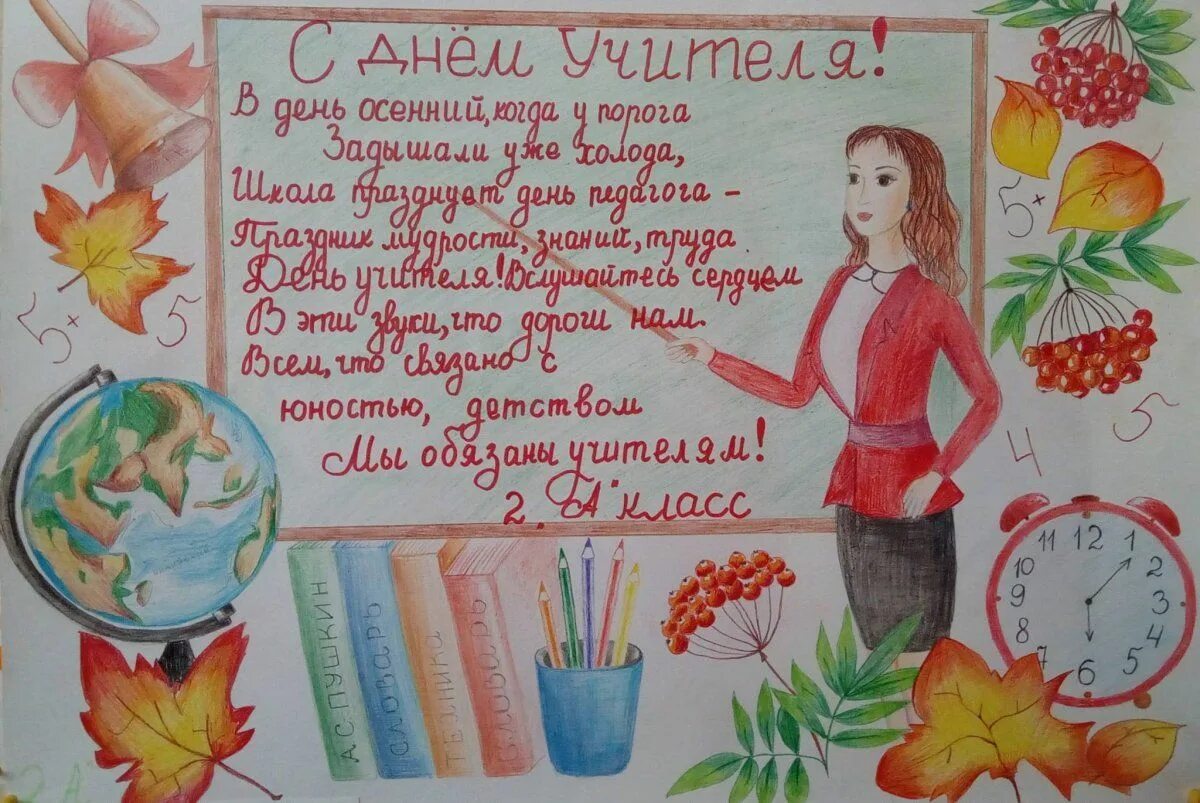 С днём Учителя!
В день осенний, когда у порога
Задышали уже холода,
Школа празднует день педагога –
Праздник мудрости, знаний, труда.
День учителя! Вслушайтесь сердцем
В эти звуки, что дороги нам.
Всем, что связано с
юностью, детством
Мы обязаны учителям!
2 "А" класс
5+
5
5+
5
4
А.С. ПУШКИН
СЛОВАРЬ
ТЕХНИКА
СЛОВАРЬ
11 12 1
10 2
9 3
8 4
7 6 5
2 А